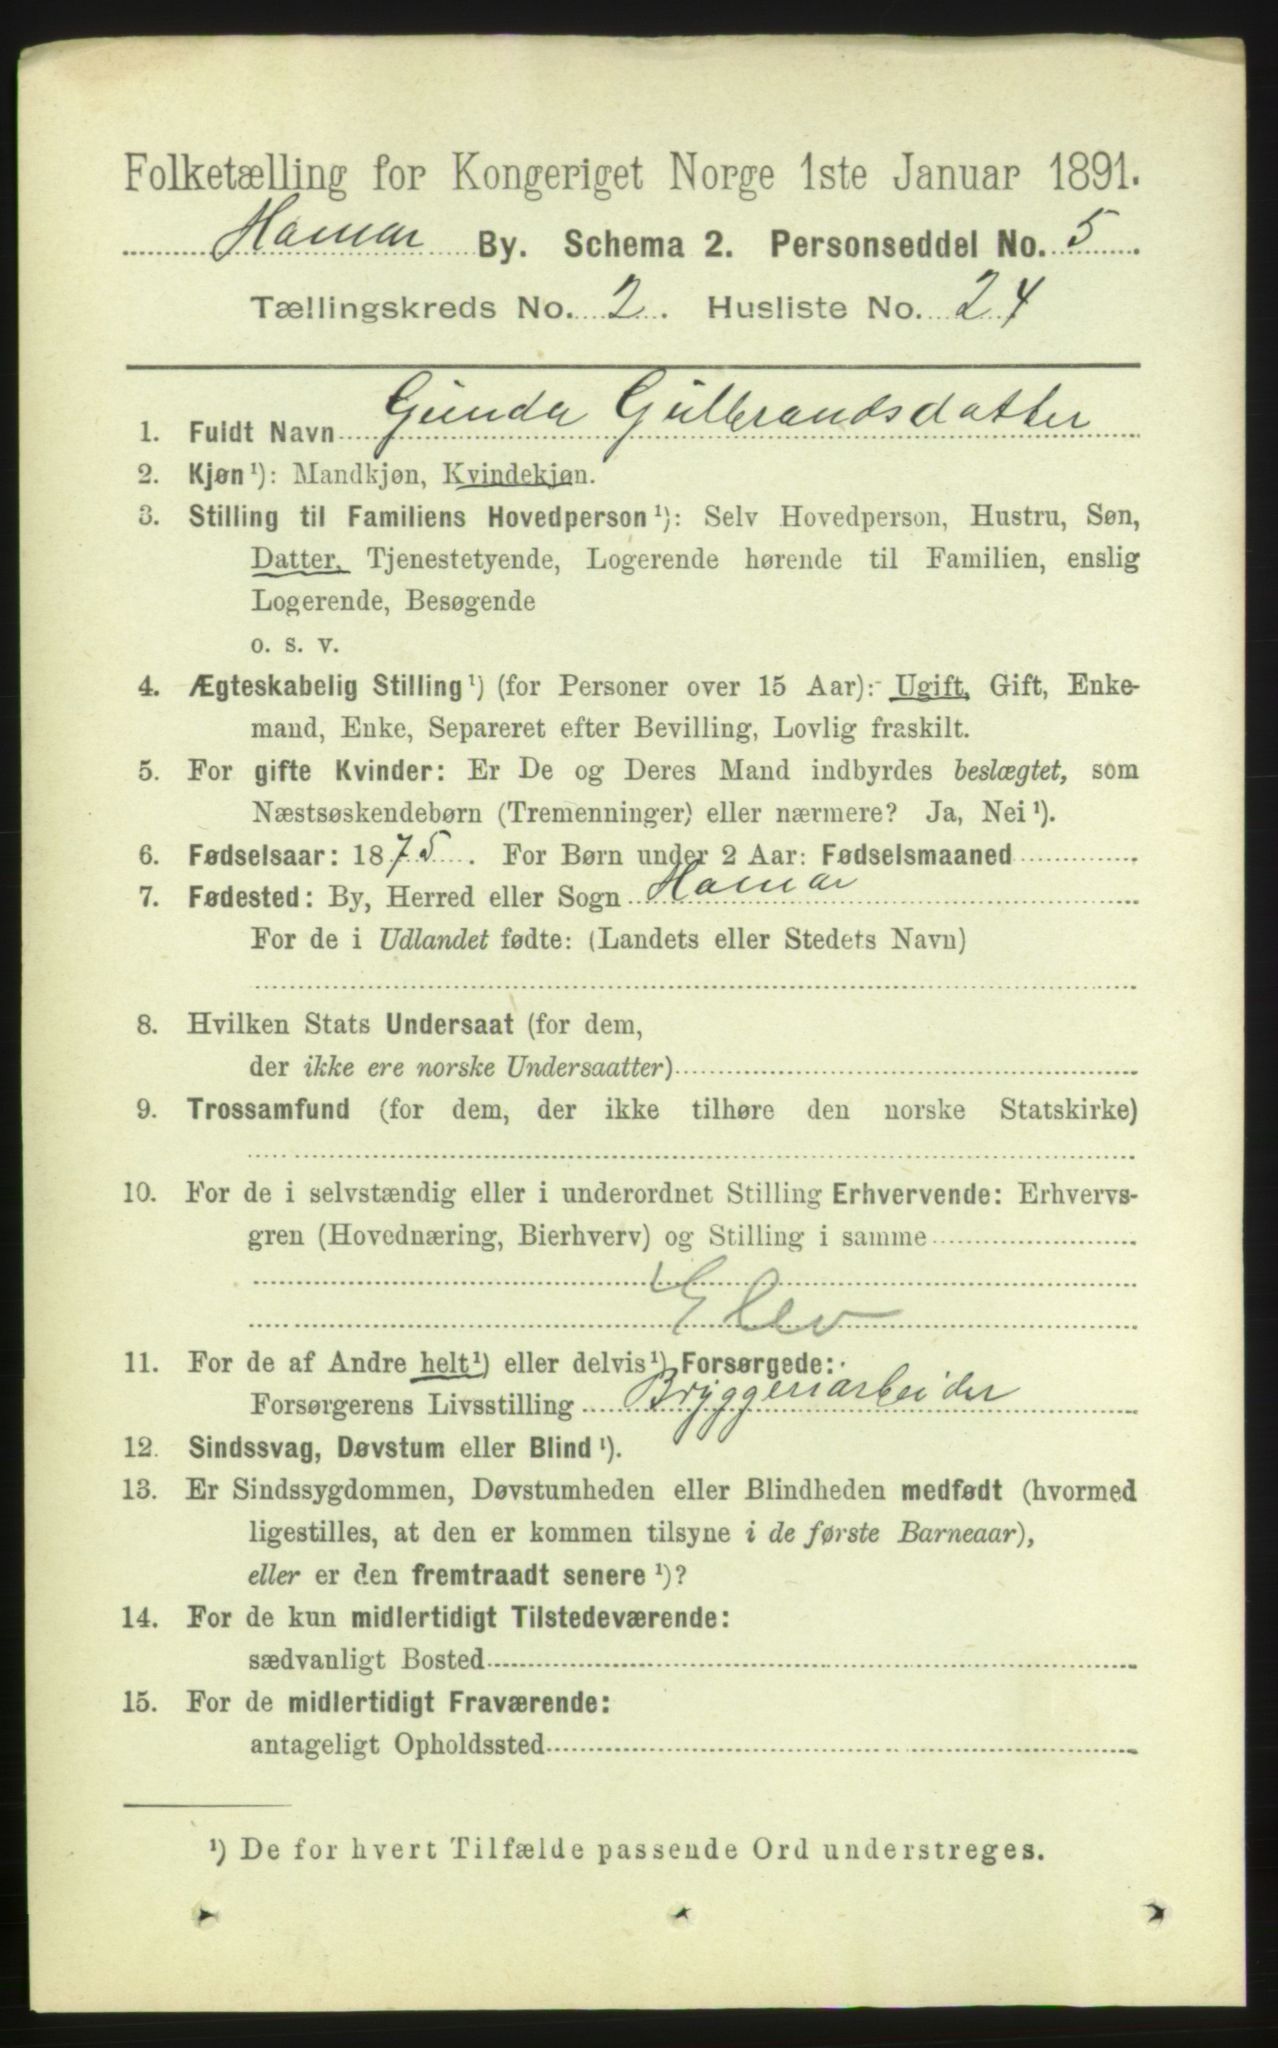 Folketælling for Kongeriget Norge 1ste Januar 1891.
Hamar By. Schema 2. Personseddel No. 5
Tællingskreds No. 2. Husliste No. 24
1. Fuldt Navn Gunda Gulbrandsdatter
2. Kjøn¹): Mandkjøn, Kvindekjøn.
3. Stilling til Familiens Hovedperson¹): Selv Hovedperson, Hustru, Søn,
Datter, Tjenestetyende, Logerende hørende til Familien, enslig
Logerende, Besøgende
o. s. v.
4. Ægteskabelig Stilling¹) (for Personer over 15 Aar): Ugift, Gift, Enke-
mand, Enke, Separeret efter Bevilling, Lovlig fraskilt.
5. For gifte Kvinder: Er De og Deres Mand indbyrdes beslægtet, som
Næstsøskendebørn (Tremenninger) eller nærmere? Ja, Nei¹).
6. Fødselsaar: 1875. For Børn under 2 Aar: Fødselsmaaned
7. Fødested: By, Herred eller Sogn Hamar
For de i Udlandet fødte: (Landets eller Stedets Navn)
8. Hvilken Stats Undersaat (for dem,
der ikke ere norske Undersaatter)
9. Trossamfund (for dem, der ikke tilhøre den norske Statskirke)
10. For de i selvstændig eller i underordnet Stilling Erhvervende: Erhvervs-
gren (Hovednæring, Bierhverv) og Stilling i samme
Elev
11. For de af Andre helt¹) eller delvis¹) Forsørgede:
Forsørgerens Livsstilling Bryggeriarbeider
12. Sindssvag, Døvstum eller Blind¹).
13. Er Sindssygdommen, Døvstumheden eller Blindheden medfødt (hvormed
ligestilles, at den er kommen tilsyne i de første Barneaar),
eller er den fremtraadt senere¹)?
14. For de kun midlertidigt Tilstedeværende:
sædvanligt Bosted
15. For de midlertidigt Fraværende:
antageligt Opholdssted
¹) De for hvert Tilfælde passende Ord understreges.